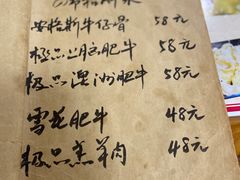 安格斯牛仔骨 58元
极品上脑肥牛 58元
极品澳洲肥牛 58元
雪花肥牛 48元
极品羔羊肉 48元